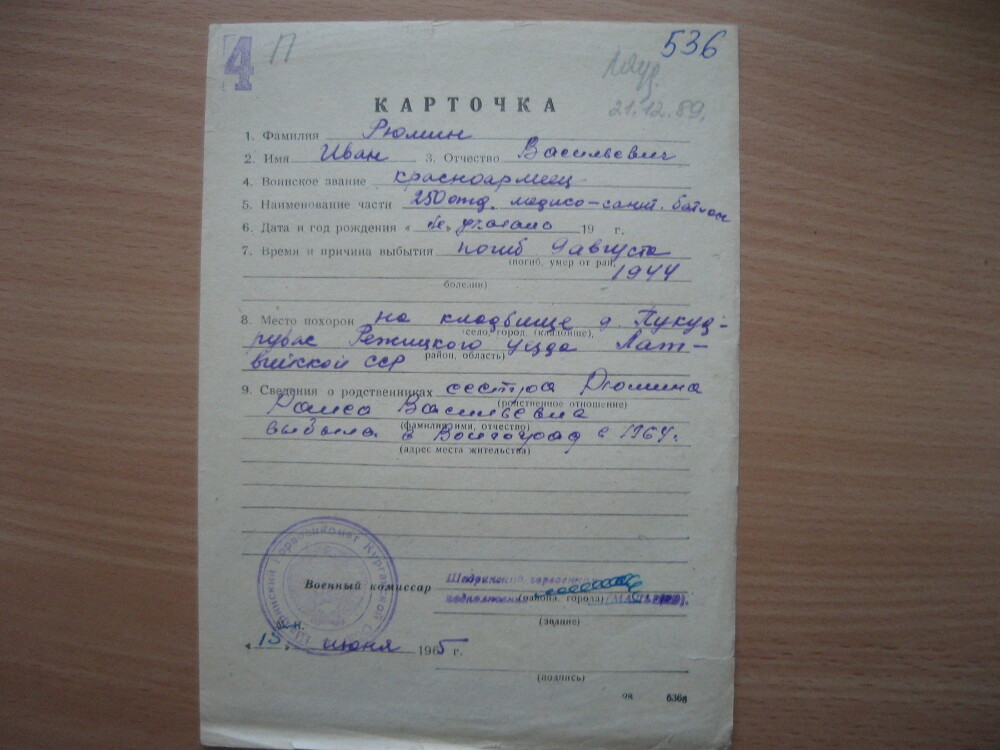 4 П 536
21.12.89.
КАРТОЧКА
1. Фамилия Рюмин
2. Имя Иван 3. Отчество Васильевич
4. Воинское звание красноармеец
5. Наименование части 250 отд. медико-санит. батальон
6. Дата и год рождения « не указано 19 г.
7. Время и причина выбытия погиб 9 августа
(погиб, умер от ран,
1944
болезни)
8. Место похорон на кладбище д. Пукуд-
(село, город, (кладбище),
рубас Режицкого уезда Лат-
вийской ССР район, область)
9. Сведения о родственниках сестра Рюмина
(родственное отношение)
Раиса Васильевна
(фамилия, имя, отчество)
выбыла в Волгоград в 1964г.
(адрес места жительства)
Военный комиссар Шадринский горвоенком
(района, города)
(звание)
М. П.
« 15 » июня 1965 г.
(подпись)
98 6368